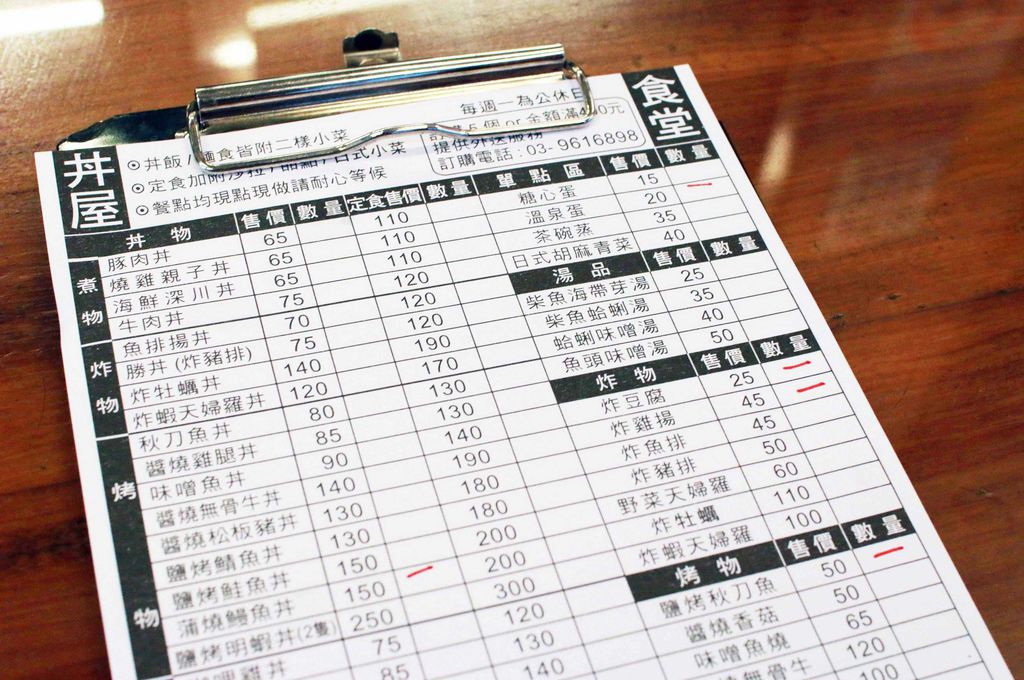 丼屋
食堂
⊙丼飯/麵食皆附二樣小菜
⊙定食加附沙拉/甜點/日式小菜
⊙餐點均現點現做請耐心等候
每週一為公休日
個 or 金額滿 0元
提供外送服務
訂購電話:03-9616898
丼物 售價 數量 定食售價 數量
煮物
豚肉丼 65 110
燒雞親子丼 65 110
海鮮深川丼 65 110
牛肉丼 75 120
炸物
魚排揚丼 70 120
勝丼(炸豬排) 75 120
炸牡蠣丼 140 190
炸蝦天婦羅丼 120 170
烤物
秋刀魚丼 80 130
醬燒雞腿丼 85 130
味噌魚丼 90 140
醬燒無骨牛丼 140 190
醬燒松板豬丼 130 180
鹽烤鯖魚丼 130 180
鹽烤鮭魚丼 150 200
蒲燒鰻魚丼 150 200
鹽烤明蝦丼(2隻) 250 300
雞丼 75 120
85 130
140
單點區 售價 數量
糖心蛋 15
溫泉蛋 20
茶碗蒸 35
日式胡麻青菜 40
湯品 售價 數量
柴魚海帶芽湯 25
柴魚蛤蜊湯 35
蛤蜊味噌湯 40
魚頭味噌湯 50
炸物 售價 數量
炸豆腐 25
炸雞揚 45
炸魚排 45
炸豬排 50
野菜天婦羅 60
炸牡蠣 110
炸蝦天婦羅 100
烤物 售價 數量
鹽烤秋刀魚 50
醬燒香菇 50
味噌魚燒 65
醬燒無骨牛 120
100